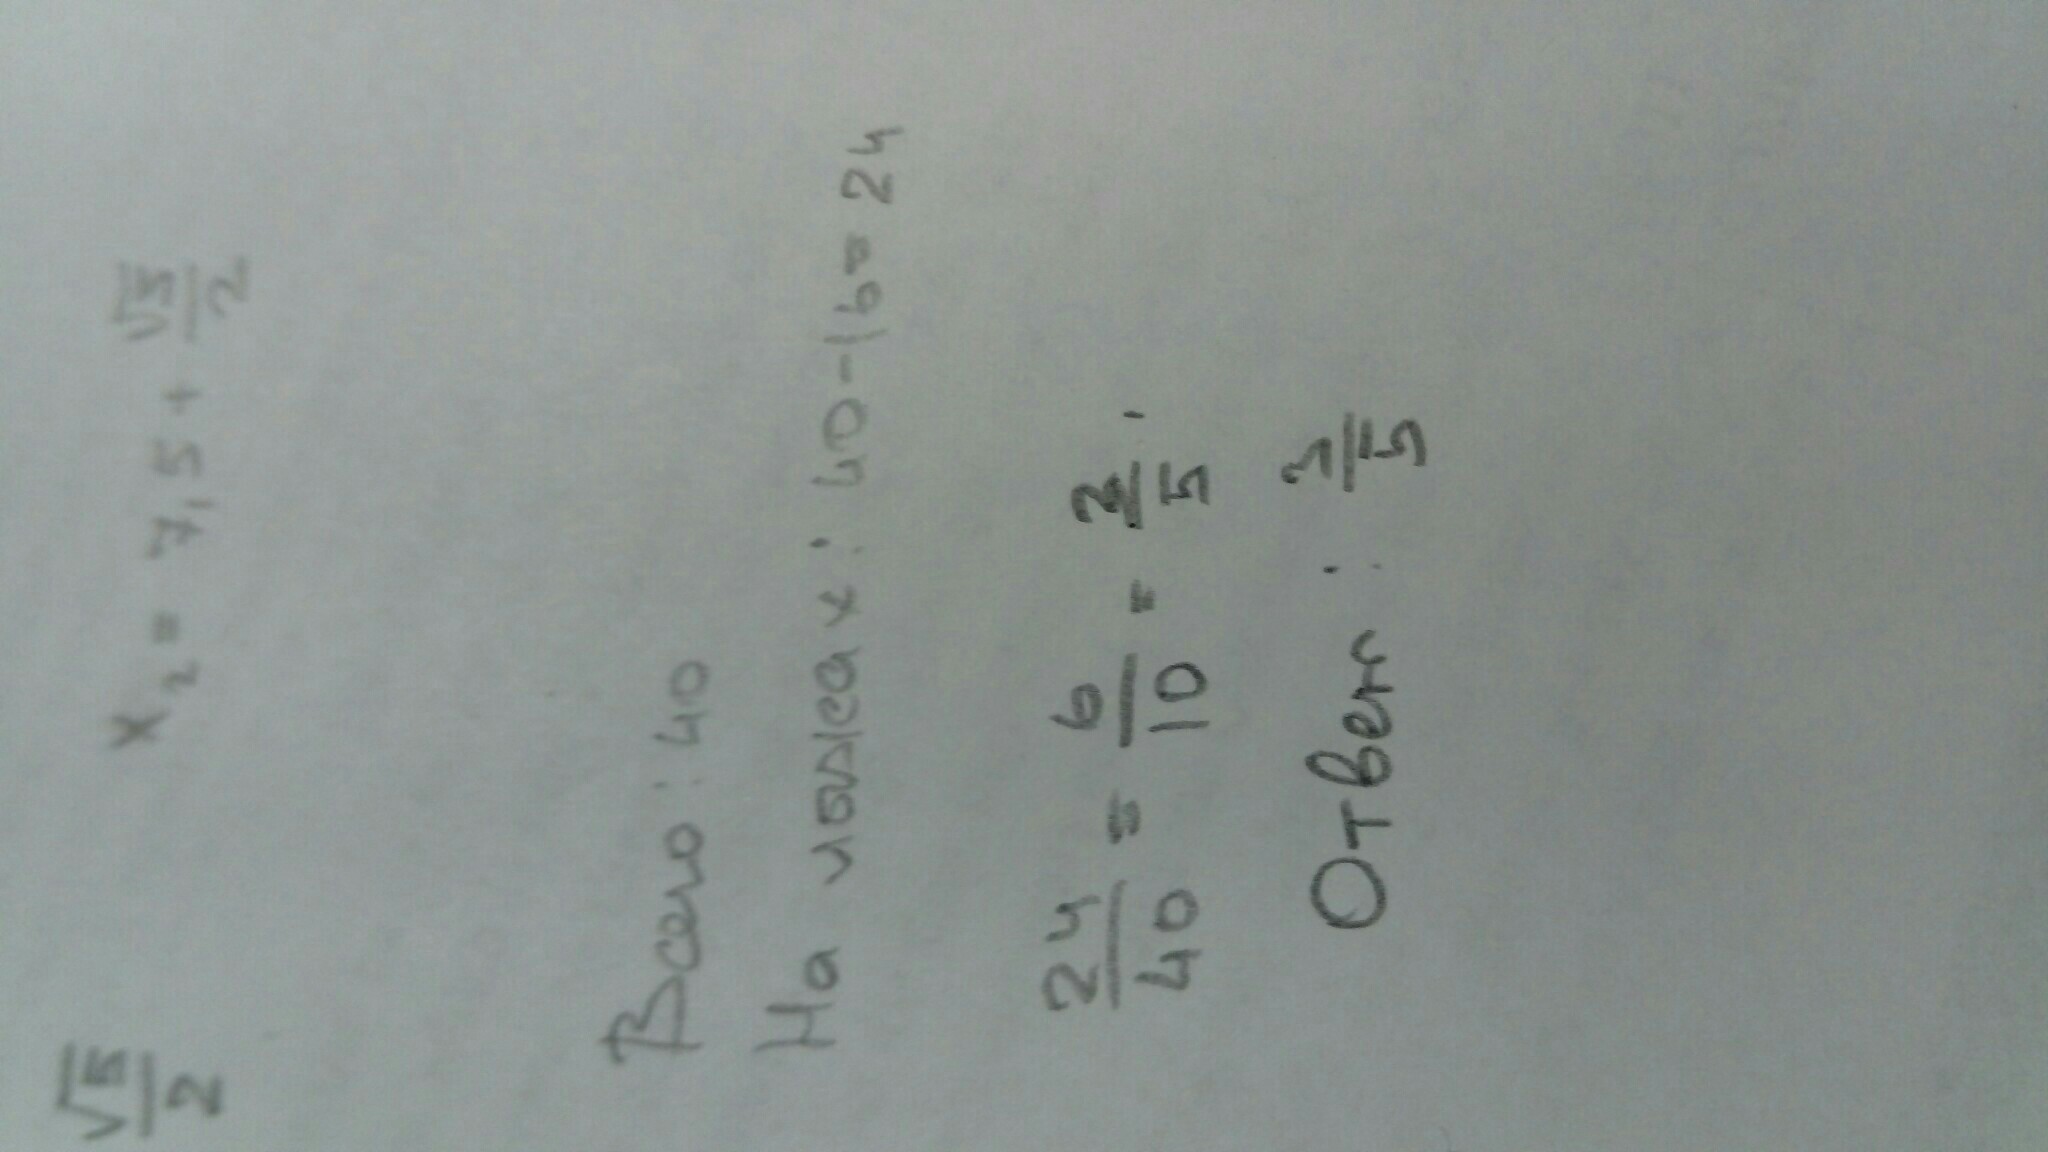 √5/2 x₂ = 7,5 + √5/2
Всего : 40
На : 40 - 16 = 24
24/40 = 6/10 = 3/5 .
Ответ : 3/5